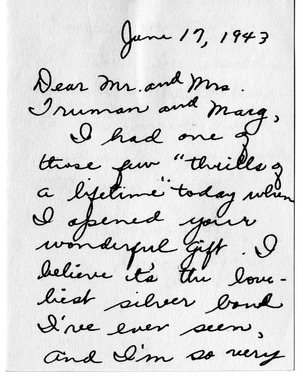 June 17, 1943
Dear Mr. and Mrs.
Truman and Marg,
I had one of
those few "thrills of
a lifetime" today when
I opened your
wonderful gift. I
believe it's the love-
liest silver bowl
I've ever seen,
and I'm so very